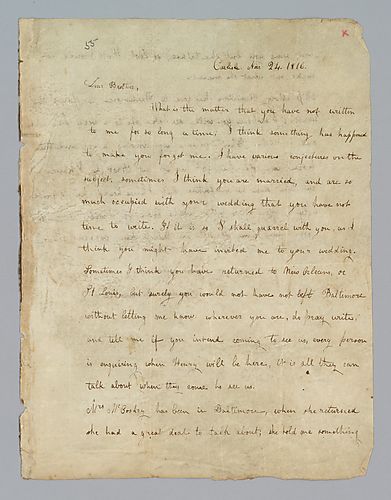 55
x
Carlisle Nov 24. 1816.
Dear Brother,
What is the matter that you have not written
to me for so long a time, I think something has happened
to make you forget me. I have various conjectures on the
subject, sometimes I think you are married, and are so
much occupied with your wedding that you have not
time to write. If it is so I shall quarrel with you as I
think you might have invited me to your wedding.
Sometimes I think you have returned to New Orleans, or
St Louis, but surely you would not haves not left Baltimore
without letting me know. wherever you are, do pray write,
and tell me if you intend coming to see us, every person
is enquiring when Henry will be here, it is all they can
talk about when they come to see us.
Mrs McCoskry has been in Baltimore, when she returned
she had a great deal to talk about; she told me something